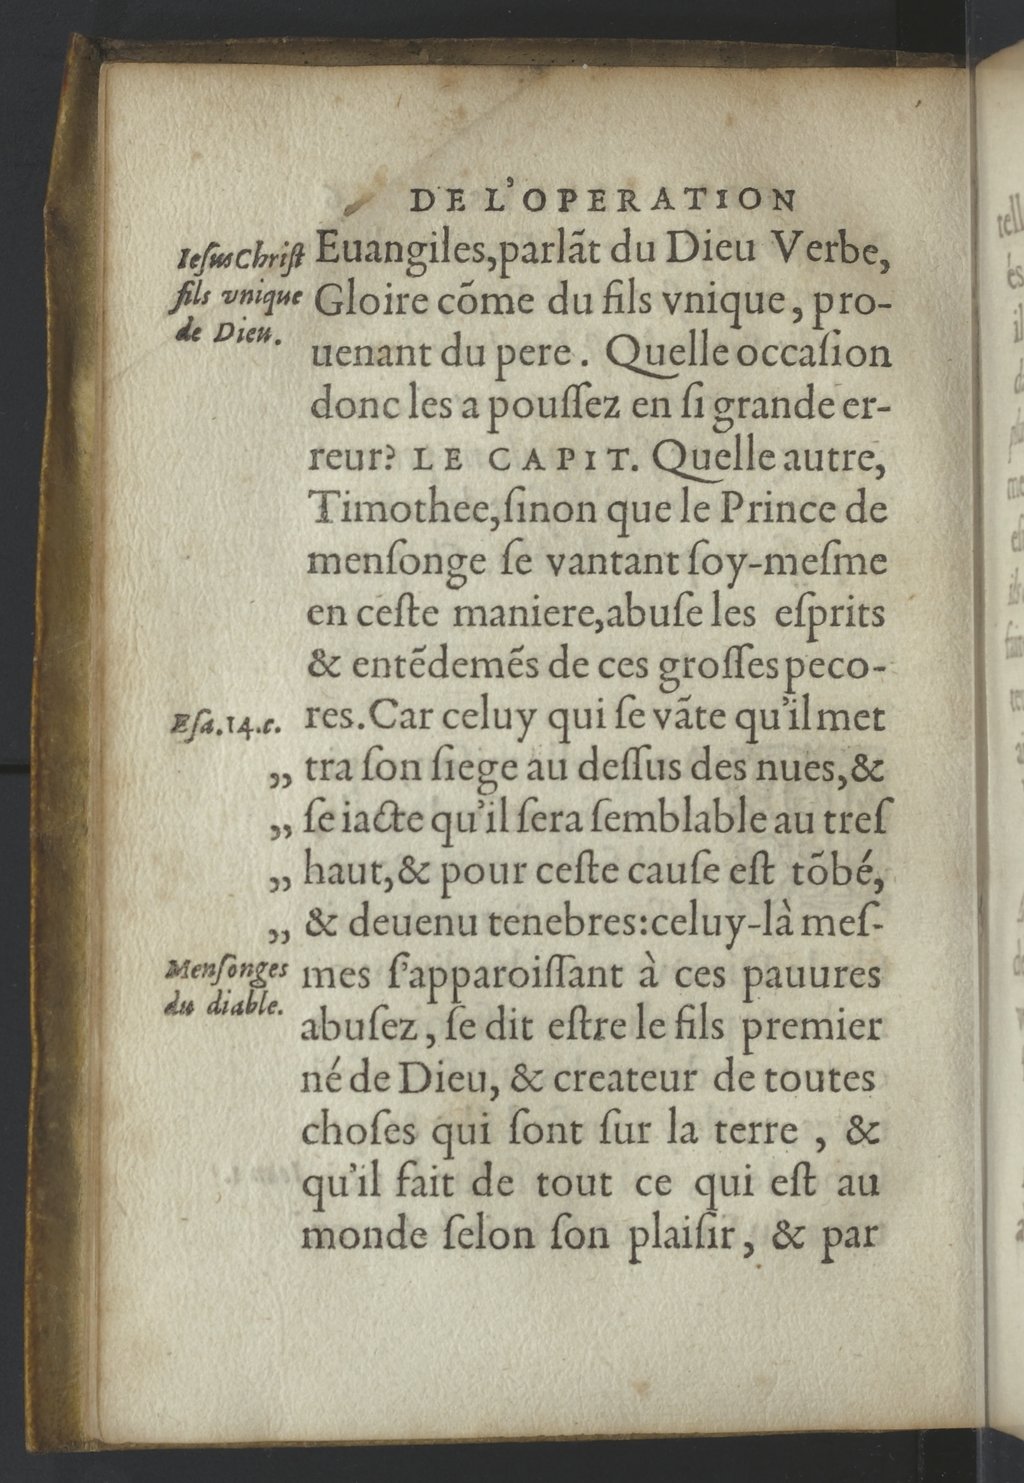 DE L'OPERATION
Ieſus Chriſt
fils vnique
de Dieu.
Euangiles,parlãt du Dieu Verbe,
Gloire cõme du fils vnique, pro-
uenant du pere. Quelle occaſion
donc les a pouſſez en ſi grande er-
reur? LE CAPIT. Quelle autre,
Timothee,ſinon que le Prince de
menſonge ſe vantant ſoy-meſme
en ceſte maniere,abuſe les eſprits
& entẽdemẽs de ces groſſes peco-
Eſa.14.c.
res. Car celuy qui ſe vãte qu'il met
„ tra ſon ſiege au deſſus des nues,&
„ ſe iacte qu'il ſera ſemblable au treſ
„ haut,& pour ceſte cauſe eſt tõbé,
„ & deuenu tenebres:celuy-là meſ-
Menſonges
du diable.
mes ſ'apparoiſſant à ces pauures
abuſez, ſe dit eſtre le fils premier
né de Dieu, & createur de toutes
choſes qui ſont ſur la terre , &
qu'il fait de tout ce qui eſt au
monde ſelon ſon plaiſir, & par